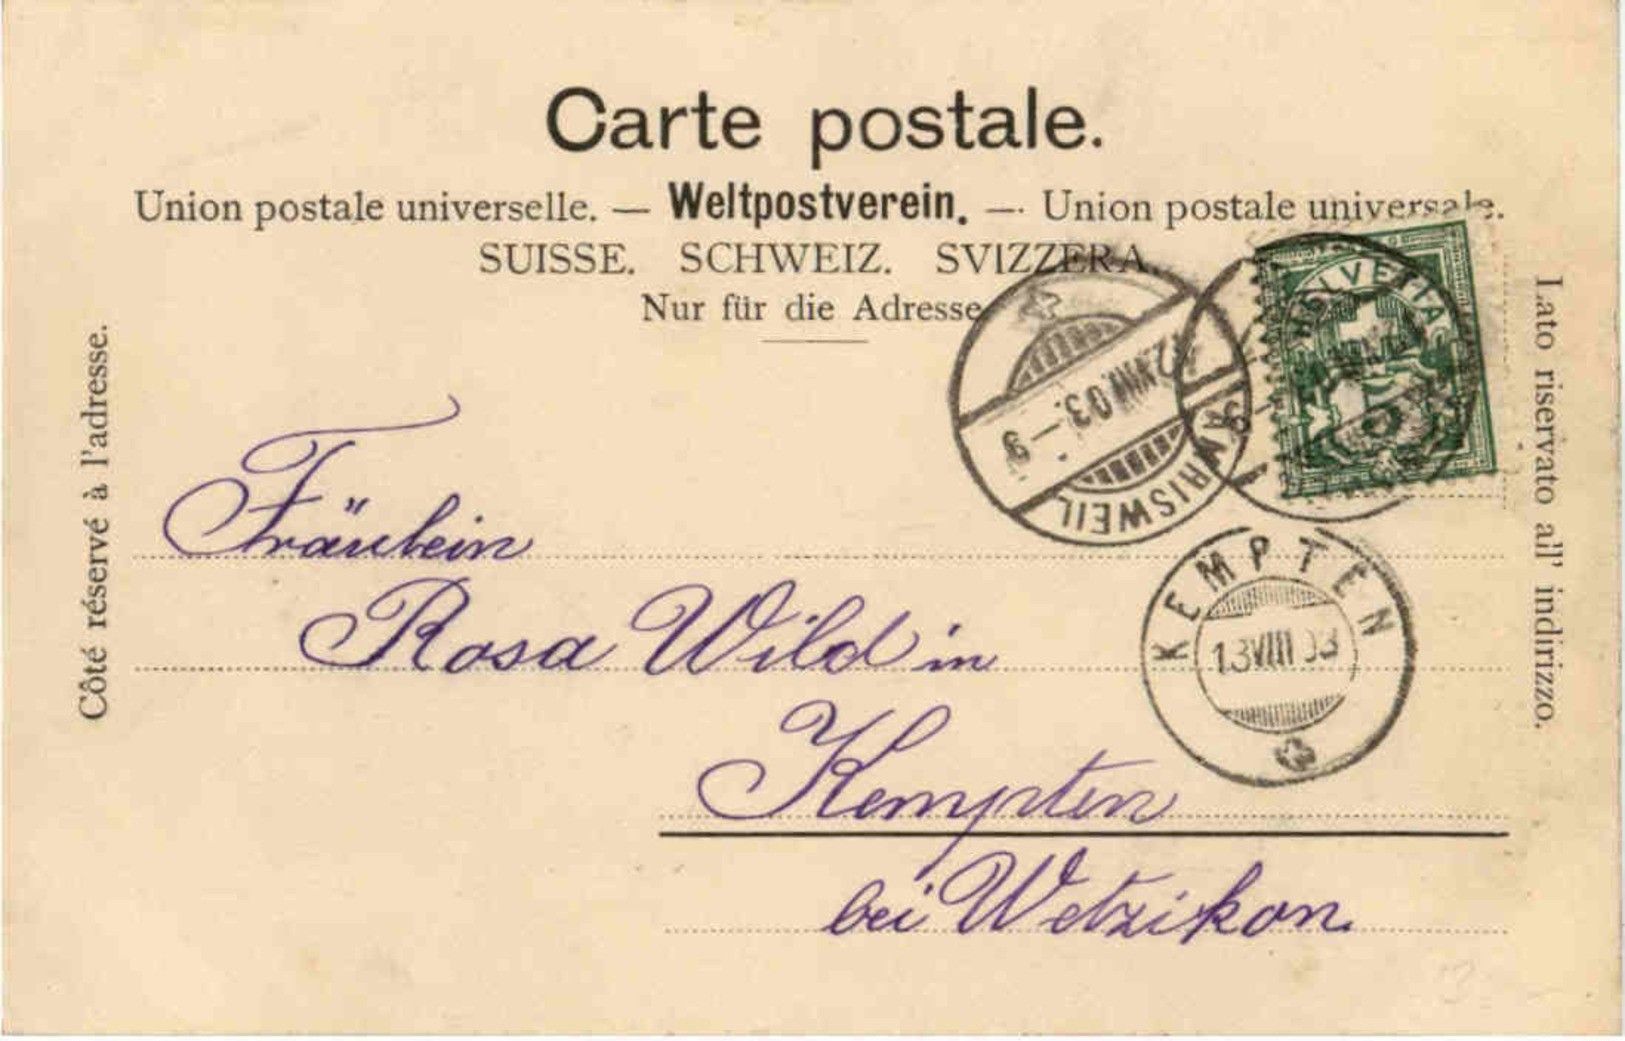 Carte postale.
Union postale universelle. — Weltpostverein. — Union postale universale.
SUISSE. SCHWEIZ. SVIZZERA.
Nur für die Adresse
Côté réservé à l'adresse.
Lato riservato all' indirizzo.
HELVETIA
12.VIII.03.—9
KEMPTEN
13 VIII 03
Fräulein
Rosa Wild in
Kempten
bei Wetzikon.